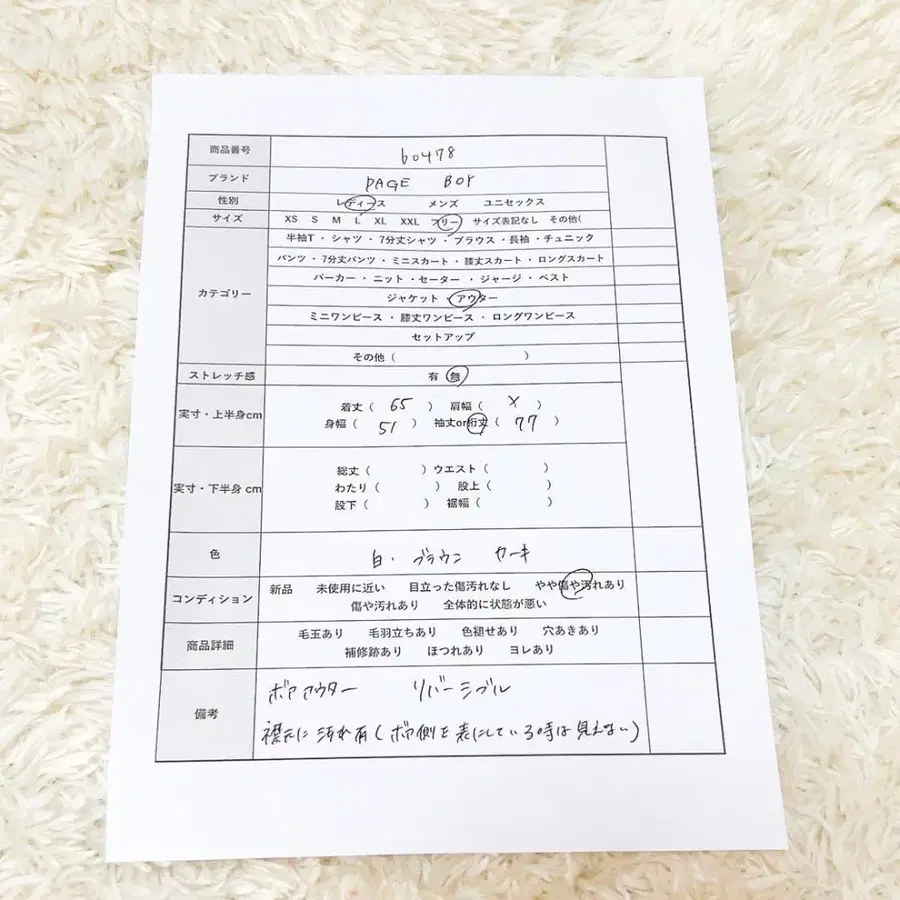 商品番号 b0478
ブランド PAGE BOY
性別 レディース メンズ ユニセックス
サイズ XS S M L XL XXL フリー サイズ表記なし その他(
カテゴリー
半袖T・シャツ・7分丈シャツ・ブラウス・長袖・チュニック
パンツ・7分丈パンツ・ミニスカート・膝丈スカート・ロングスカート
パーカー・ニット・セーター・ジャージ・ベスト
ジャケット・アウター
ミニワンピース・膝丈ワンピース・ロングワンピース
セットアップ
その他( )
ストレッチ感 有 無
実寸・上半身cm
着丈( 65 ) 肩幅( X )
身幅( 51 ) 袖丈or裄丈( 77 )
実寸・下半身cm
総丈( ) ウエスト( )
わたり( ) 股上( )
股下( ) 裾幅( )
色 白・ブラウン カーキ
コンディション
新品 未使用に近い 目立った傷汚れなし やや傷や汚れあり
傷や汚れあり 全体的に状態が悪い
商品詳細
毛玉あり 毛羽立ちあり 色褪せあり 穴あきあり
補修跡あり ほつれあり ヨレあり
備考
ボアアウター リバーシブル
襟元に汚れ有(ボア側を表にしている時は見えない)